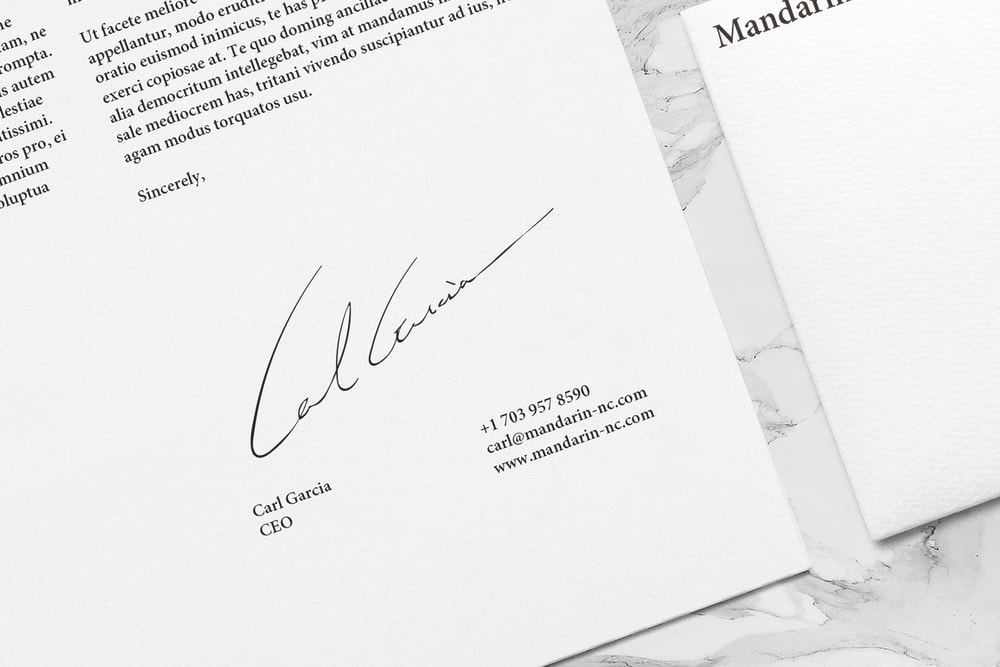 am, ne
rompta.
s autem
lestiae
tissimi.
ros pro, ei
mnium
oluptua
Ut facete meliore
appellantur, modo erudit
oratio euismod inimicus, te has p
exerci copiosae at. Te quo doming ancillae
alia democritum intellegebat, vim at mandamus
sale mediocrem has, tritani vivendo suscipiantur ad ius,
agam modus torquatos usu.
Sincerely,
Carl Garcia
+1 703 957 8590
carl@mandarin-nc.com
www.mandarin-nc.com
Carl Garcia
CEO
Mandarin